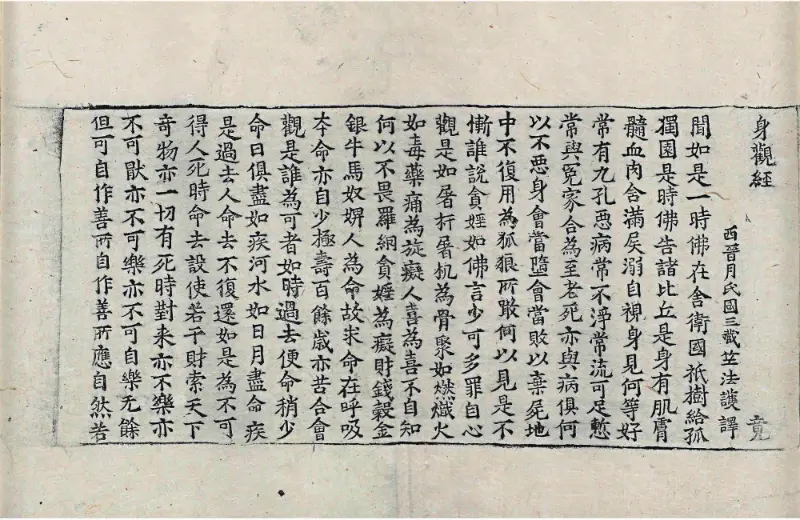 身觀經
竟
西晉月氏國三藏竺法護譯
聞如是一時佛在舍衛國祇樹給孤
獨園是時佛告諸比丘是身有肌膚
髓血肉含滿屎溺自視身見何等好
常有九孔惡病常不淨常流可足慙
常與冤家合為至老死亦與病俱何
以不惡身會當墮會當敗以棄死地
中不復用為狐狼所噉何以見是不
慚誰說貪婬如佛言少可多罪自心
觀是如屠杅屠机為骨聚如燃熾火
如毒藥痛為旋癡人喜為喜不自知
何以不畏羅網貪婬為癡財錢穀金
銀牛馬奴婢人為命故求命在呼吸
夲命亦自少極壽百餘歲亦苦合會
觀是誰為可者如時過去便命稍少
命日俱盡如疾河水如日月盡命疾
是過去人命去不復還如是為不可
得人死時命去設使若干財索天下
奇物亦一切有死時對来亦不樂亦
不可猒亦不可樂亦不可自樂无餘
但可自作善所自作善所應自然若